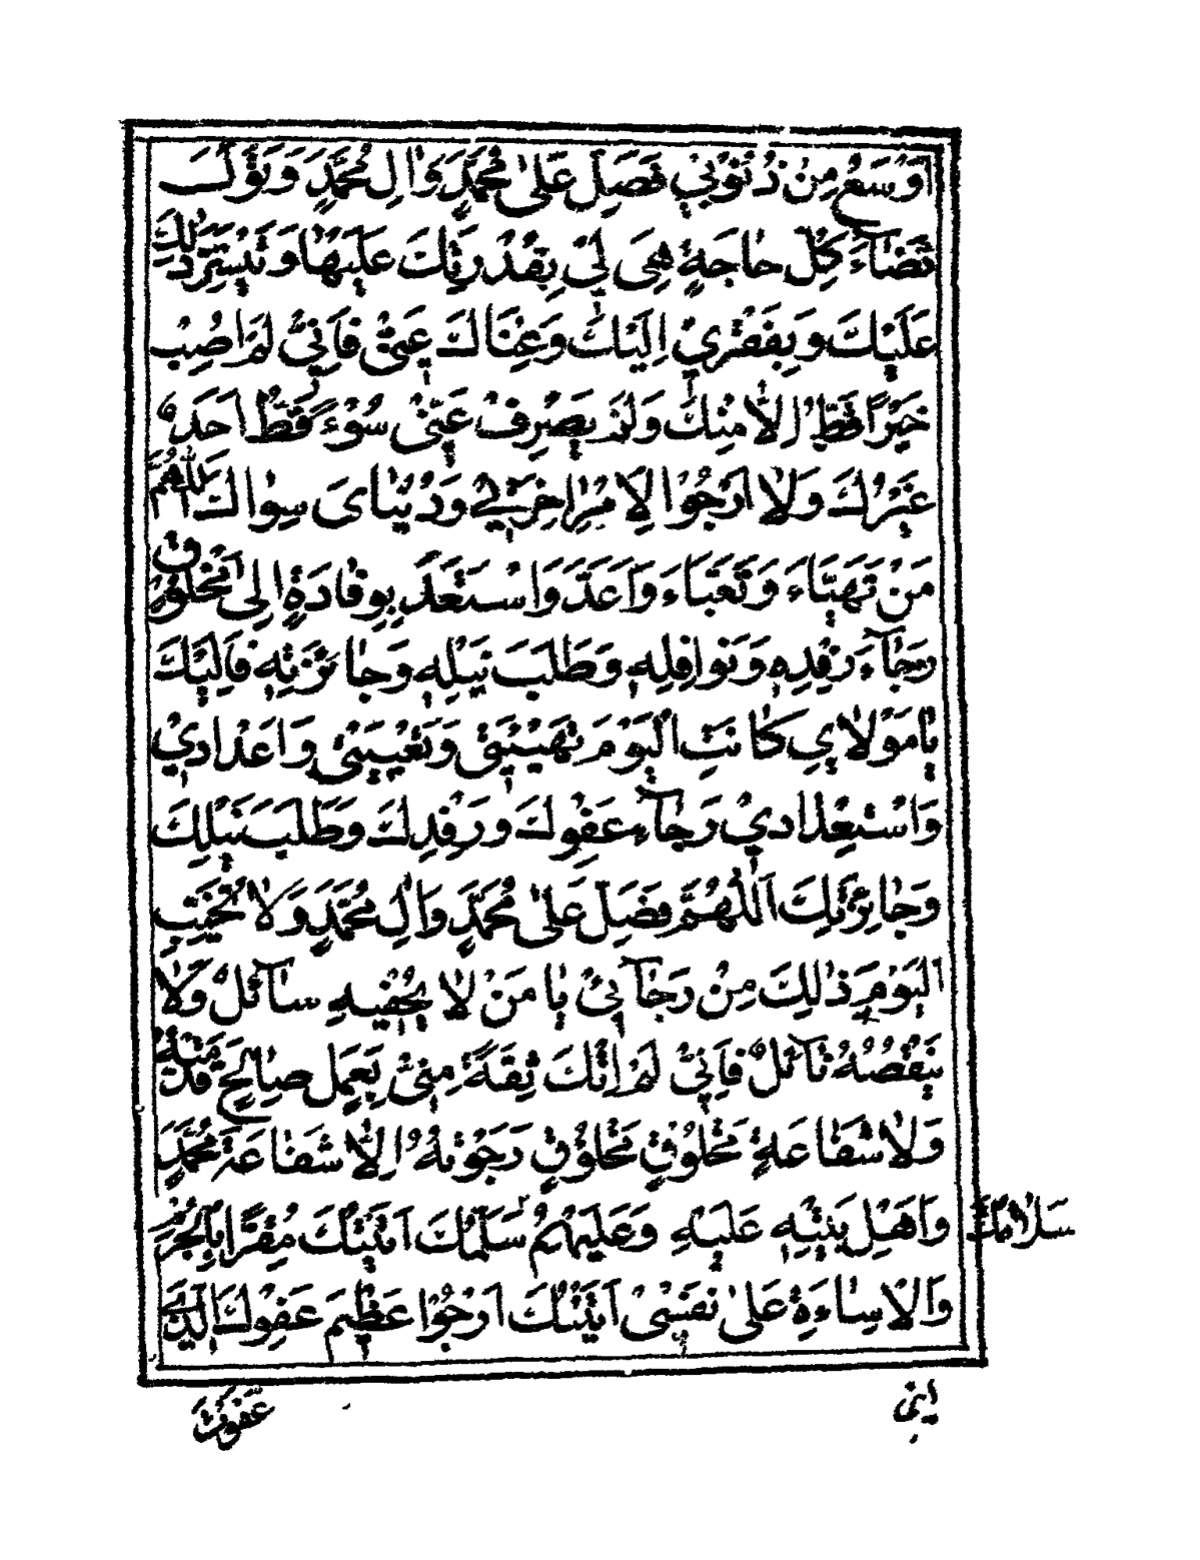 اَوْسَعُ مِنْ ذُنُوْبِيْ فَصَلِّ عَلٰى مُحَمَّدٍ وَاٰلِ مُحَمَّدٍ وَتَوَلَّ
قَضَآءَ كُلِّ حَاجَةٍ هِىَ لِيْ بِقُدْرَتِكَ عَلَيْهَا وَتَيْسِيْرِ ذٰلِكَ
عَلَيْكَ وَبِفَقْرِيْ اِلَيْكَ وَغِنَاكَ عَنِّيْ فَاِنِّيْ لَمْ اُصِبْ
خَيْرًا قَطُّ اِلَّا مِنْكَ وَلَمْ يَصْرِفْ عَنِّيْ سُوْءً قَطُّ اَحَدٌ
غَيْرُكَ وَلَا اَرْجُوْا لِاَمْرِ اٰخِرَتِيْ وَدُنْيَاىَ سِوَاكَ اَللّٰهُمَّ
مَنْ تَهَيَّاءَ وَتَعَبَّاءَ وَاَعَدَّ وَاسْتَعَدَّ بِوِفَادَةٍ اِلٰى مَخْلُوْقٍ
رَجَآءَ رِفْدِهٖ وَنَوَافِلِهٖ وَطَلَبَ نَيْلِهٖ وَجَائِزَتِهٖ فَاِلَيْكَ
يَا مَوْلَايَ كَانَتِ الْيَوْمَ تَهْيِئَتِيْ وَتَعْبِيَتِيْ وَاِعْدَادِيْ
وَاسْتِعْدَادِيْ رَجَآءَ عَفْوِكَ وَرِفْدِكَ وَطَلَبَ نَيْلِكَ
وَجَائِزَتِكَ اَللّٰهُمَّ فَصَلِّ عَلٰى مُحَمَّدٍ وَاٰلِ مُحَمَّدٍ وَلَا تُخَيِّبِ
الْيَوْمَ ذٰلِكَ مِنْ رَجَآئِيْ يَا مَنْ لَا يُحْفِيْهِ سَآئِلٌ وَلَا
يَنْقُصُهُ نَآئِلٌ فَاِنِّيْ لَمْ اٰتِكَ ثِقَةً مِنِّيْ بِعَمَلٍ صَالِحٍ قَدَّمْتُهٗ
وَلَا شَفَاعَةِ مَخْلُوْقٍ مَخْلُوْقٍ رَجَوْتُهُ اِلَّا شَفَاعَةَ مُحَمَّدٍ
وَاَهْلِ بَيْتِهٖ عَلَيْهِ وَعَلَيْهِمْ سَلَامُكَ اَتَيْتُكَ مُقِرًّا بِالْجُرْمِ
سَلَامُكَ
وَالْاِسَاءَةِ عَلٰى نَفْسِيْ اَتَيْتُكَ اَرْجُوْا عَظِيْمَ عَفْوِكَ الَّذِيْ
عَفَوْتَ